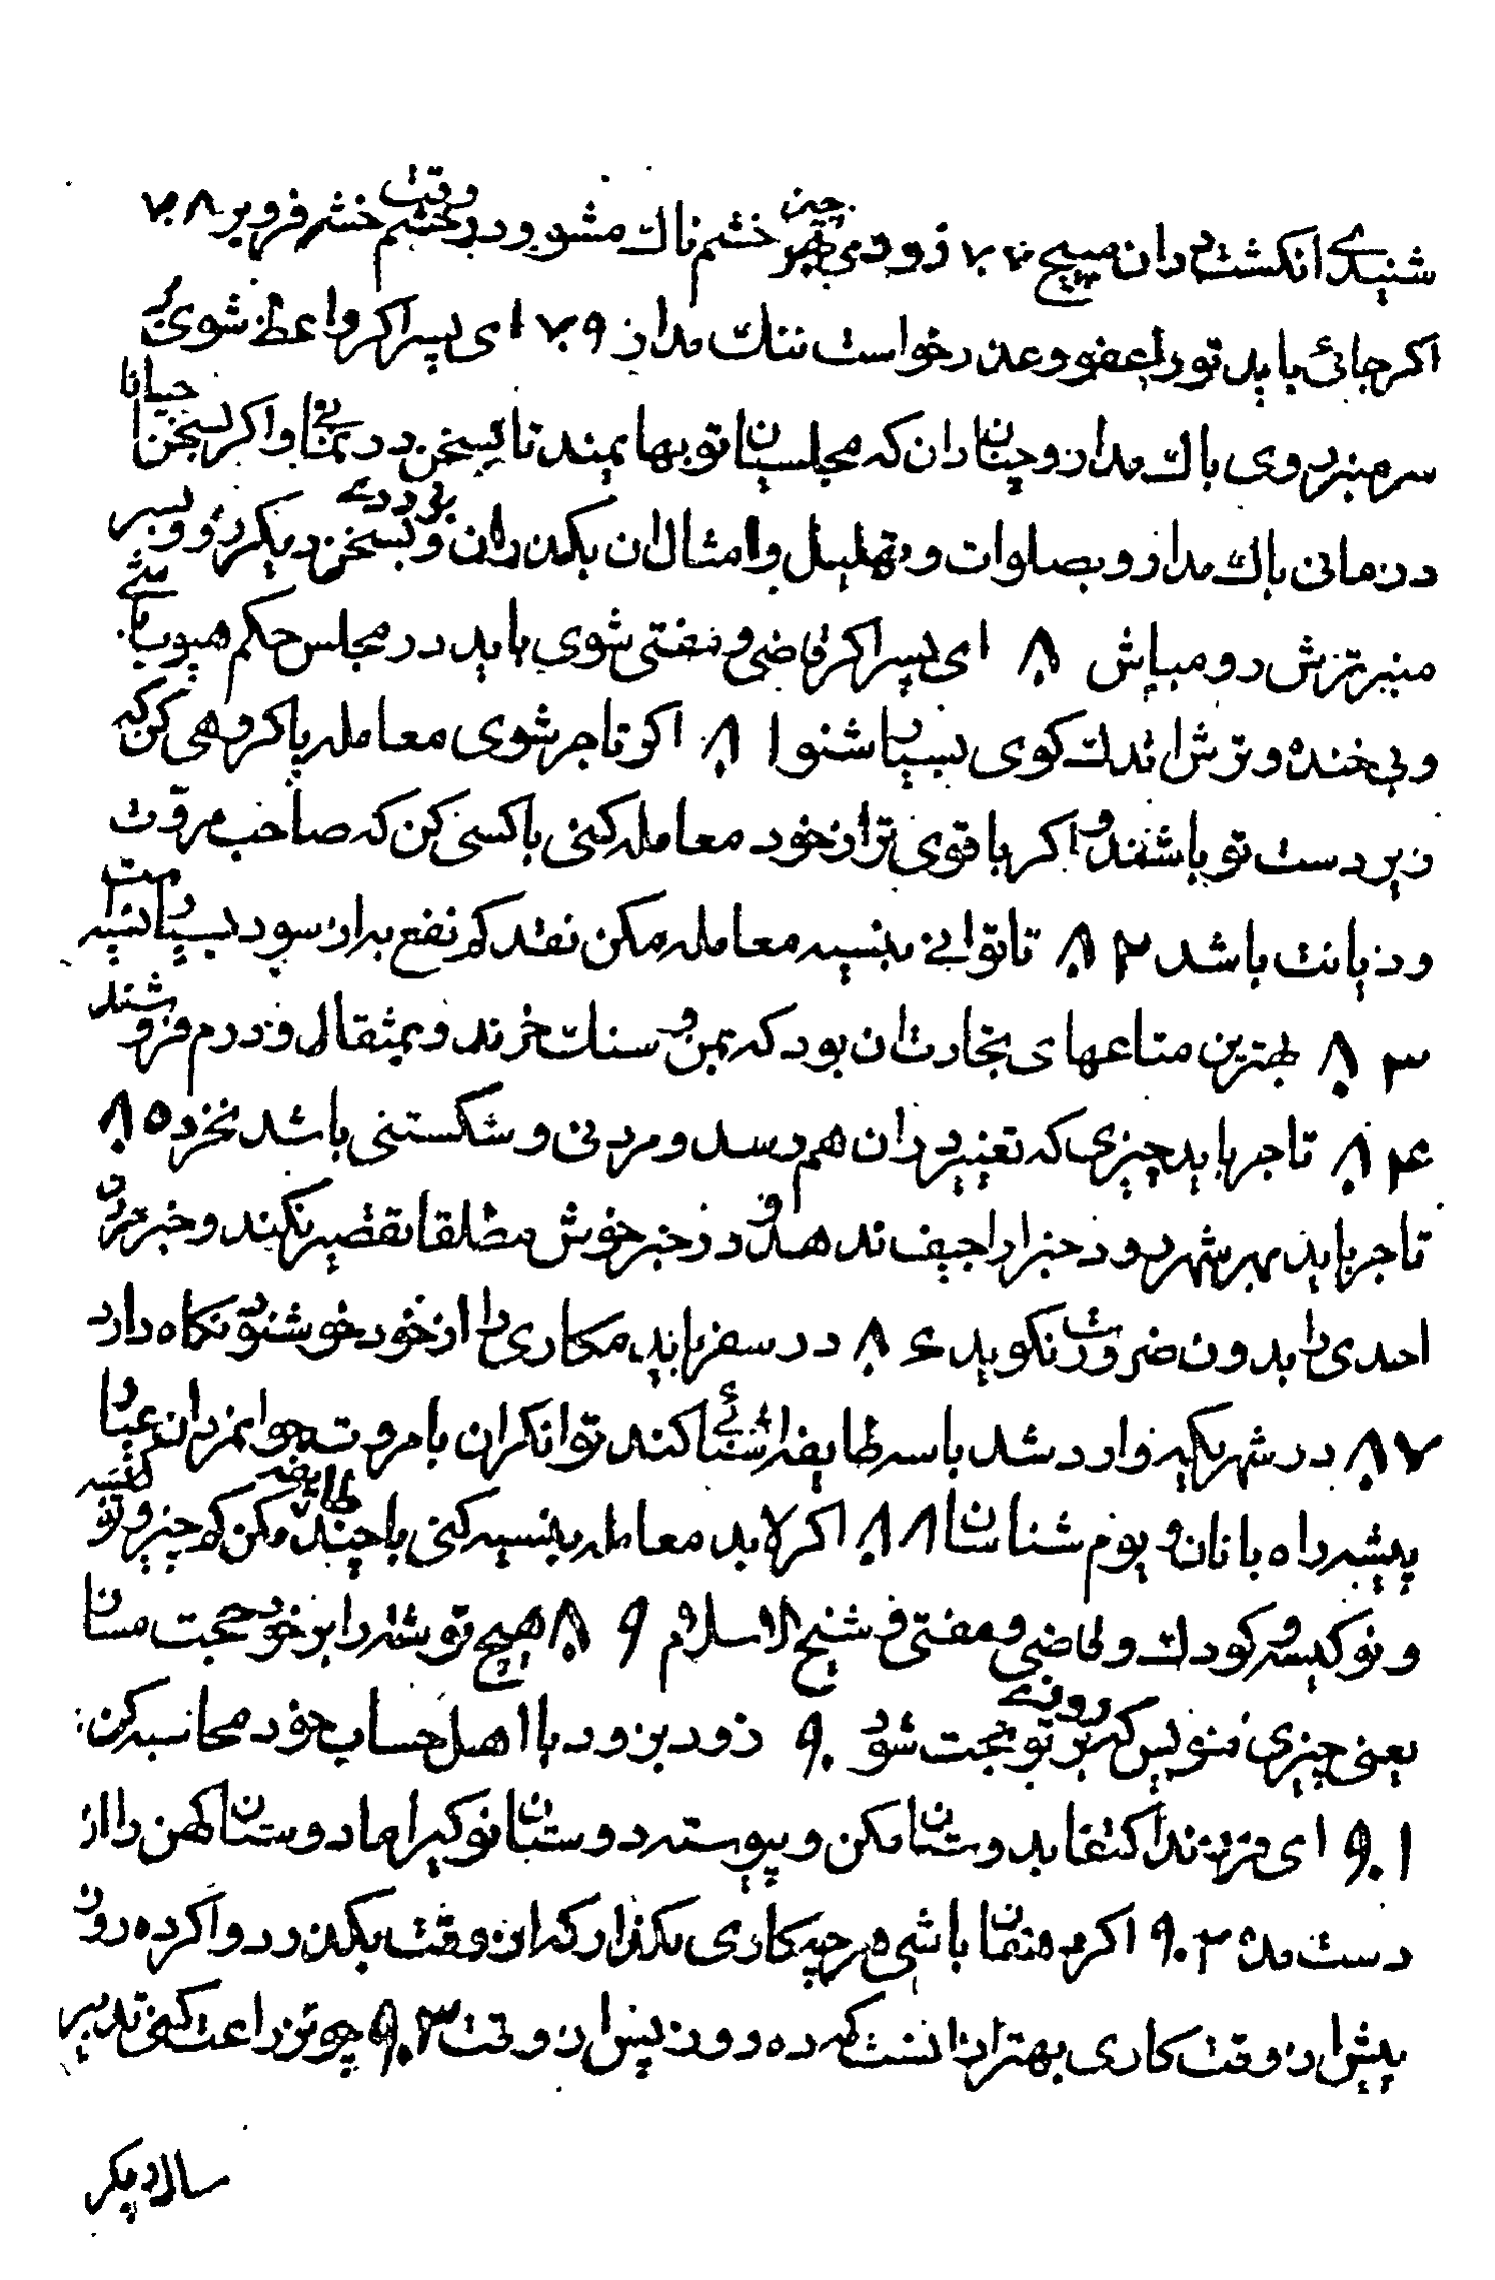 شنیدی انکشت دران مپیچ ۷۷ زود بهر چیز خشم ناك مشو و در وقت خشم خشم فرو بر ۷۸
اکر جائی باید تو را عفو و عذر خواست ننك مدار ۷۹ ای پسر اکر واعظ شوی بر
سر منبر روی باك مدار و چنان دان که مجلسیان تو بهایمند تا بسخن در نمانی و اکر بسخن احیانا
درمانی باك مدار و بصلوات و تهلیل و امثال ان بکذران و بزودی بسخن دیکر رو و بسر
منبر ترش رو مباش ۸۰ ای پسر اکر قاضی و مفتی شوی باید در مجلس حکم مهیوب باشی
و بی خنده و ترش اندك کوی بسیار شنو ۸۱ اکر تاجر شوی معامله با کروهی کن که
زیر دست تو باشند و اکر با قوی تر از خود معامله کنی با کسی کن که صاحب مروّت
و دیانت باشد ۸۲ تا توانی بنسیه معامله مکن نقد کم نفع به از سود بسیار نسیه است
۸۳ بهترین متاعهای تجارت ان بود که بمن و سنك خرند و بمثقال و درم فروشند
۸۴ تاجر باید چیزی که تغییر دران هم رسد و مردنی و شکستنی باشد نخرد ۸۵
تاجر باید بهر شهر رود خبر اراجیف ندهد و در خبر خوش مطلقا تقصیر نکند و خبر مردن
احدی را بدون ضرورت نکوید ۸۶ در سفر باید مکاری را از خود خوشنود نکاه دارد
۸۷ در شهر بکیه وارد شد با سه طایفه اشنائی کند توانکران با مروت جوانمردان عیار
پیشه راه بانان و بوم شناسان ۸۸ اکر لابد معامله بنسیه کنی با چند طایفه مکن کم چیز و نو کیسه
و نو کیسه و کودك و قاضی و مفتی و شیخ الاسلام ۸۹ هیچ نوشته را بر خود حجت مساز
یعنی چیزی منویس که روزی بر تو حجت شود ۹۰ زود بزود با اهل حساب خود محاسبه کن
۹۱ ای فرزند اکتفا بدوستان مکن و پیوسته دوستان نو کیر اما دوستان کهن را از
دست مده ۹۲ اکر دهقان باشی هر چه کاری مکذار که از وقت بکذرد و اکر ده روز
پیش از وقت کاری بهتر از انست که ده روز پس از وقت ۹۳ چون زراعت کنی تدبیر
سال دیکر